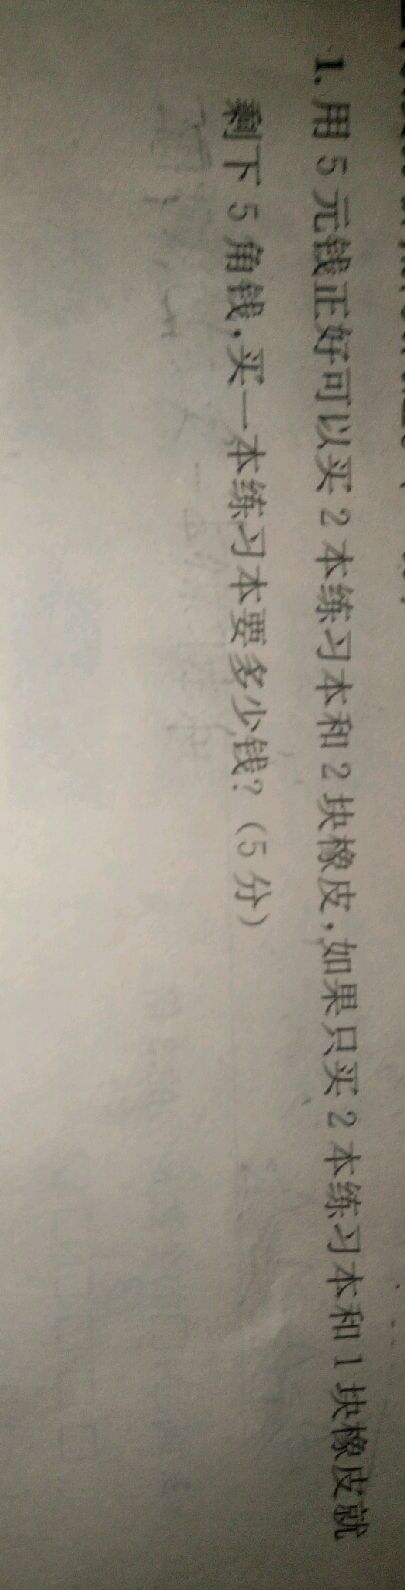 1. 用 5 元钱正好可以买 2 本练习本和 2 块橡皮，如果只买 2 本练习本和 1 块橡皮就
剩下 5 角钱，买一本练习本要多少钱？（5 分）